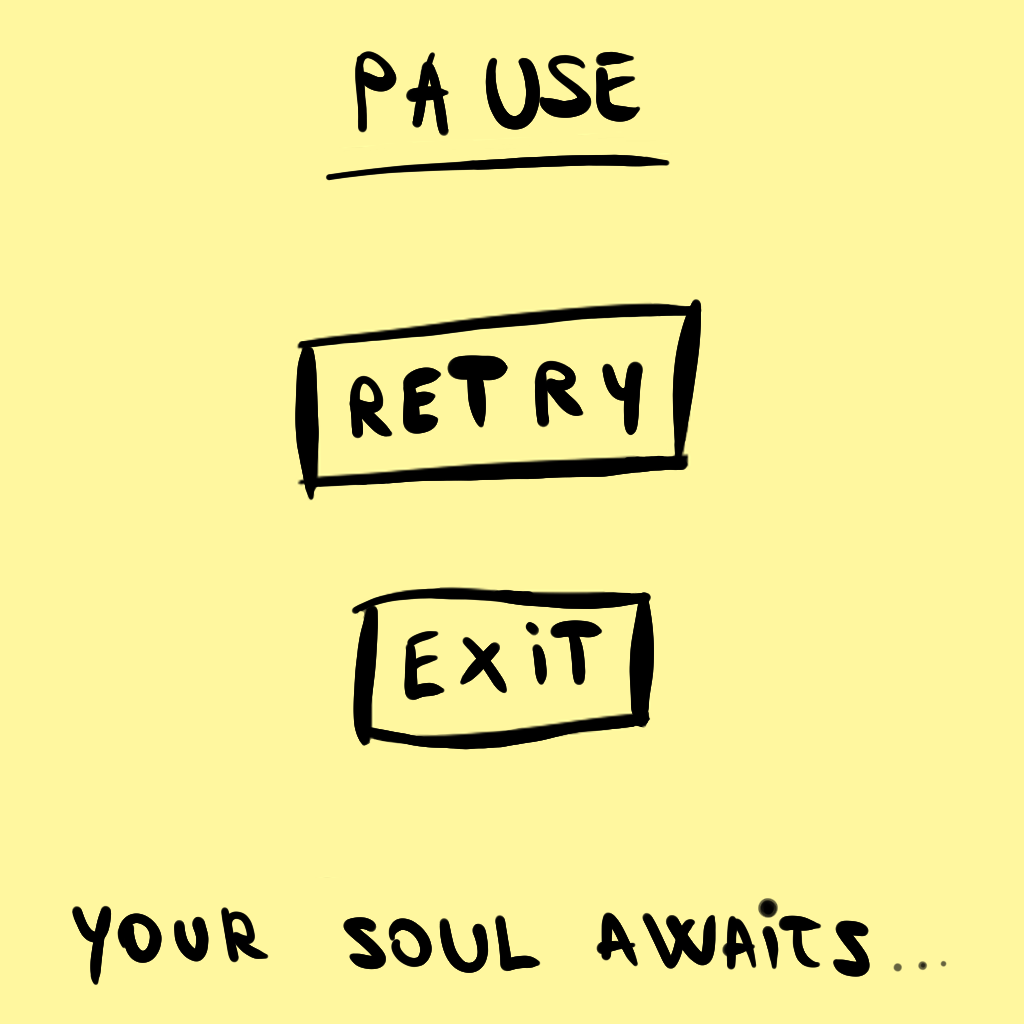 PAUSE
RETRY
EXiT
YOUR SOUL AWAiTS...